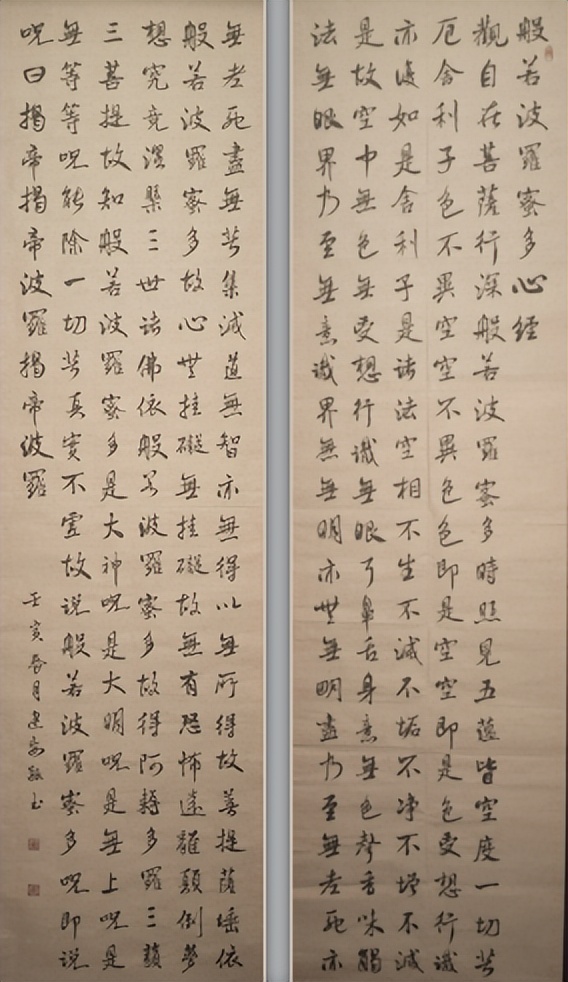 般若波羅蜜多心經
觀自在菩薩行深般若波羅蜜多時照見五蘊皆空度一切苦
厄舍利子色不異空空不異色色即是空空即是色受想行識
亦復如是舍利子是諸法空相不生不滅不垢不净不增不減
是故空中無色無受想行識無眼耳鼻舌身意無色聲香味觸
法無眼界乃至無意識界無無明亦無無明盡乃至無老死亦
無老死盡無苦集滅道無智亦無得以無所得故菩提薩埵依
般若波羅蜜多故心無挂礙無挂礙故無有恐怖遠離顛倒夢
想究竟涅槃三世諸佛依般若波羅蜜多故得阿耨多羅三藐
三菩提故知般若波羅蜜多是大神呪是大明呪是無上呪是
無等等呪能除一切苦真實不虛故説般若波羅蜜多呪即説
呪曰揭帝揭帝波羅揭帝波羅
壬寅春月建安敬书